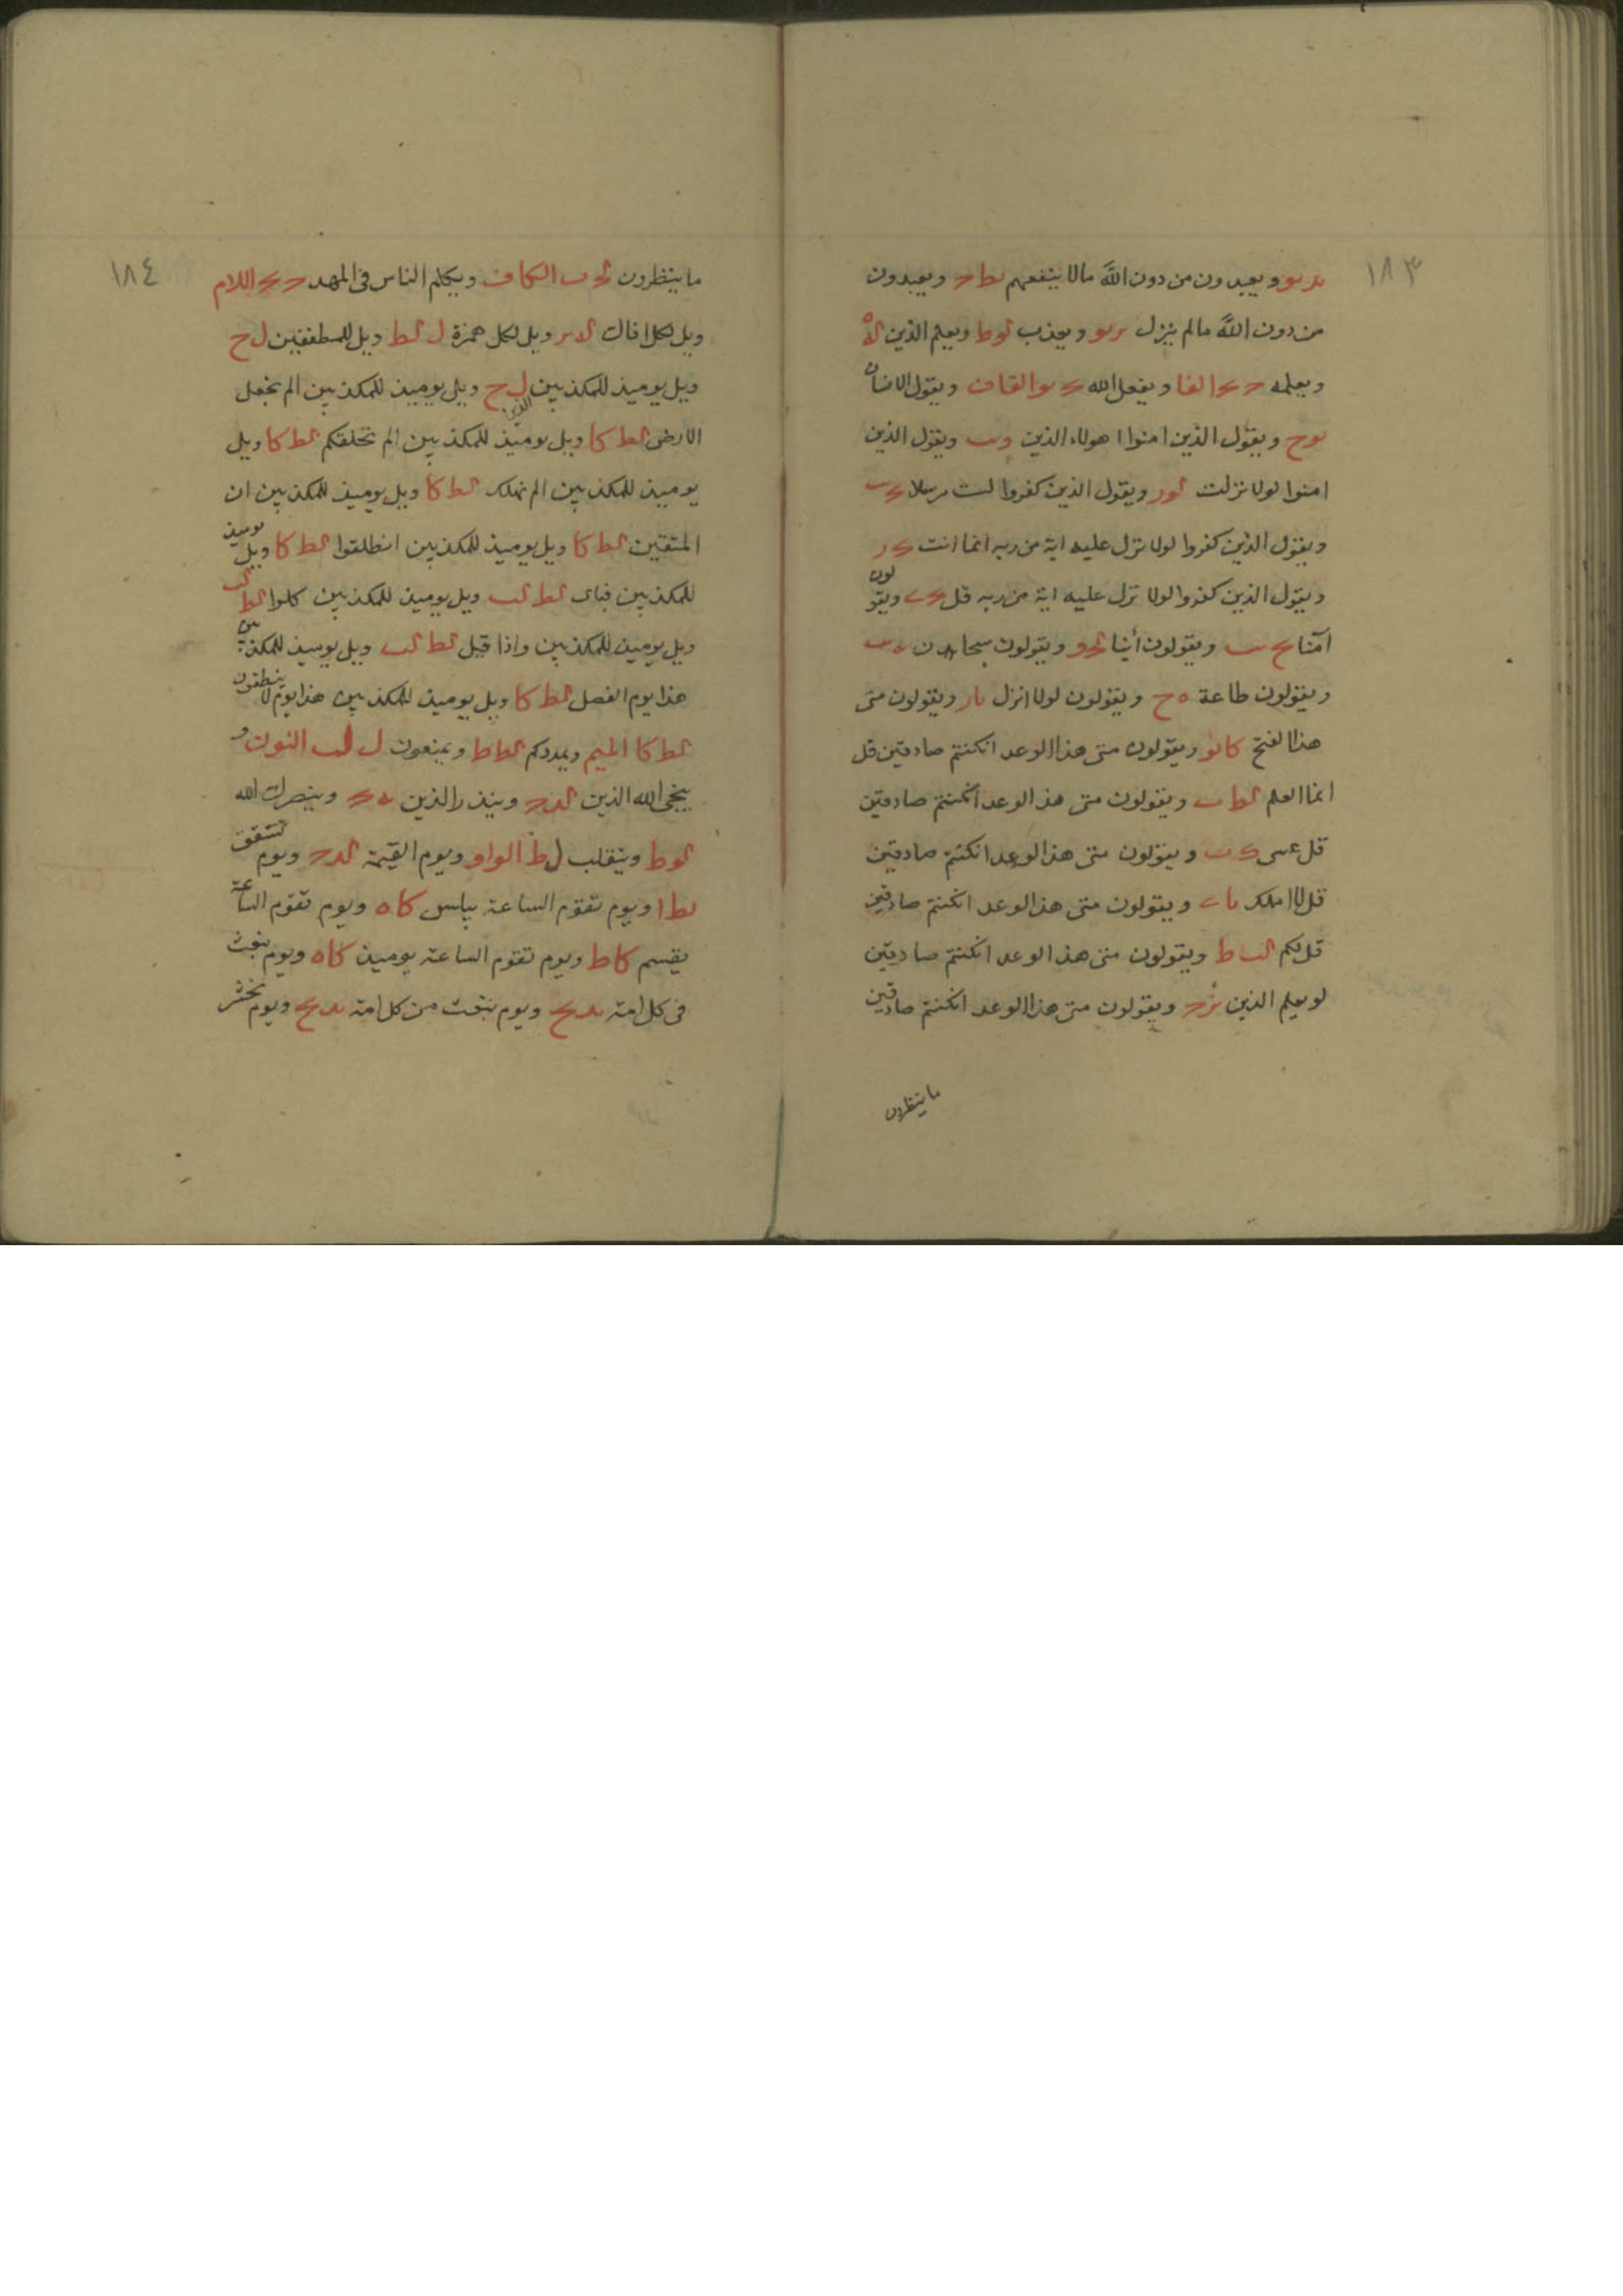 ١٨٣
ويعبدون من دون الله مالا ينفعهم نط ويعبدون
من دون الله مالم ينزل ويعذب لوط ويعلم الذين
ويعلمه الفا ويفعل الله القاف ويقول الانسان
ويقول الذين امنوا اهولاء الذين ويقول الذين
امنوا لولا نزلت ويقول الذين كفروا لست مرسلا
ويقول الذين كفروا لولا نزل عليه اية من ربه انما انت
ويقول الذين كفروا لولا نزل عليه اية من ربه قل ويقولون
آمنا ويقولون أئنا ويقولون سبحان
ويقولون طاعة ه ح ويقولون لولا انزل ويقولون متى
هذا الفتح ويقولون متى هذا الوعد انكنتم صادقين قل
انما العلم ويقولون متى هذا الوعد انكنتم صادقين
قل عسى ويقولون متى هذا الوعد انكنتم صادقين
قل لا املك ويقولون متى هذا الوعد انكنتم صادقين
قل لكم ويقولون متى هذا الوعد انكنتم صادقين
لو يعلم الذين ويقولون متى هذا الوعد انكنتم صادقين
ما ينظرون
١٨٤
ما ينظرون الكاف ويكلم الناس فى المهد اللام
ويل لكل افاك ويل لكل همزة ل لط ويل للمطففين ل ح
ويل يوميذ للمكذبين الذين ل ح ويل يوميذ للمكذبين الم نجعل
الارض لط كا ويل يوميذ للمكذبين الم نخلقكم لط كا ويل
يوميذ للمكذبين الم نهلك لط كا ويل يوميذ للمكذبين ان
المتقين لط كا ويل يوميذ للمكذبين انطلقوا لط كا ويل يوميذ
للمكذبين فباى لط لب ويل يوميذ للمكذبين كلوا لط لب
ويل يوميذ للمكذبين واذا قيل لط لب ويل يوميذ للمكذبين
هذا يوم الفصل لط كا ويل يوميذ للمكذبين هذا يوم لا ينطقون
لط كا الميم ويمددكم لط ط ويمنعون ل لب النون و
ينجى الله الذين وينذر الذين وينصرك الله
لوط وينقلب ل ط الواو ويوم القيمة ويوم تشقق
نط ا ويوم تقوم الساعة يبلس كا ه ويوم تقوم الساعة
يقسم كا ط ويوم تقوم الساعة يوميذ كا ه ويوم نبعث
فى كل امة ويوم نبعث من كل امة ويوم نحشر